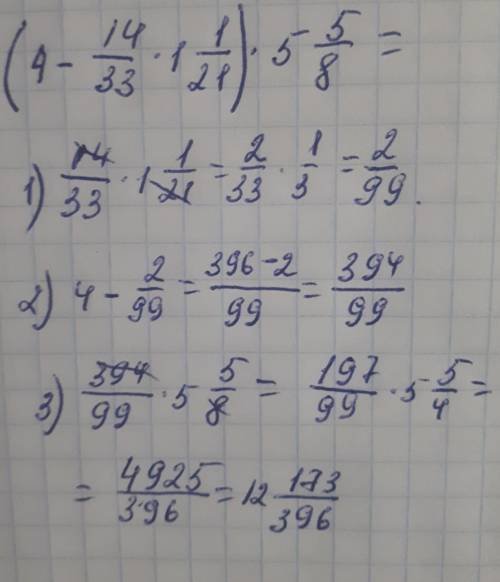 (4 - 14/33 · 1 1/21) · 5 5/8 =
1) 14/33 · 1 1/21 = 2/33 · 1/3 = 2/99.
2) 4 - 2/99 = 396-2/99 = 394/99
3) 394/99 · 5 5/8 = 197/99 · 5 5/4 =
= 4925/396 = 12 173/396